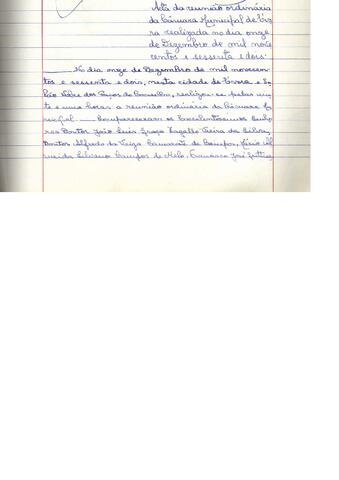 Acta da reunião ordinária
da Câmara Municipal de Évo
ra realizada no dia onze
de Dezembro de mil nove
centos e sessenta e dois:
No dia onze de Dezembro de mil novecen
tos e sessenta e dois, nesta cidade de Évora e Sa
lão Nobre dos Paços do Concelho, realizou-se pelas vin
te e uma horas a reunião ordinária da Câmara Mu
nicipal. Compareceram os Excelentíssimos Senho
res Doutor João Luís Vieira da Silva,
Doutor Alfredo da Veiga de Campos, Mário
Silvano Campos de Melo, Francisco José